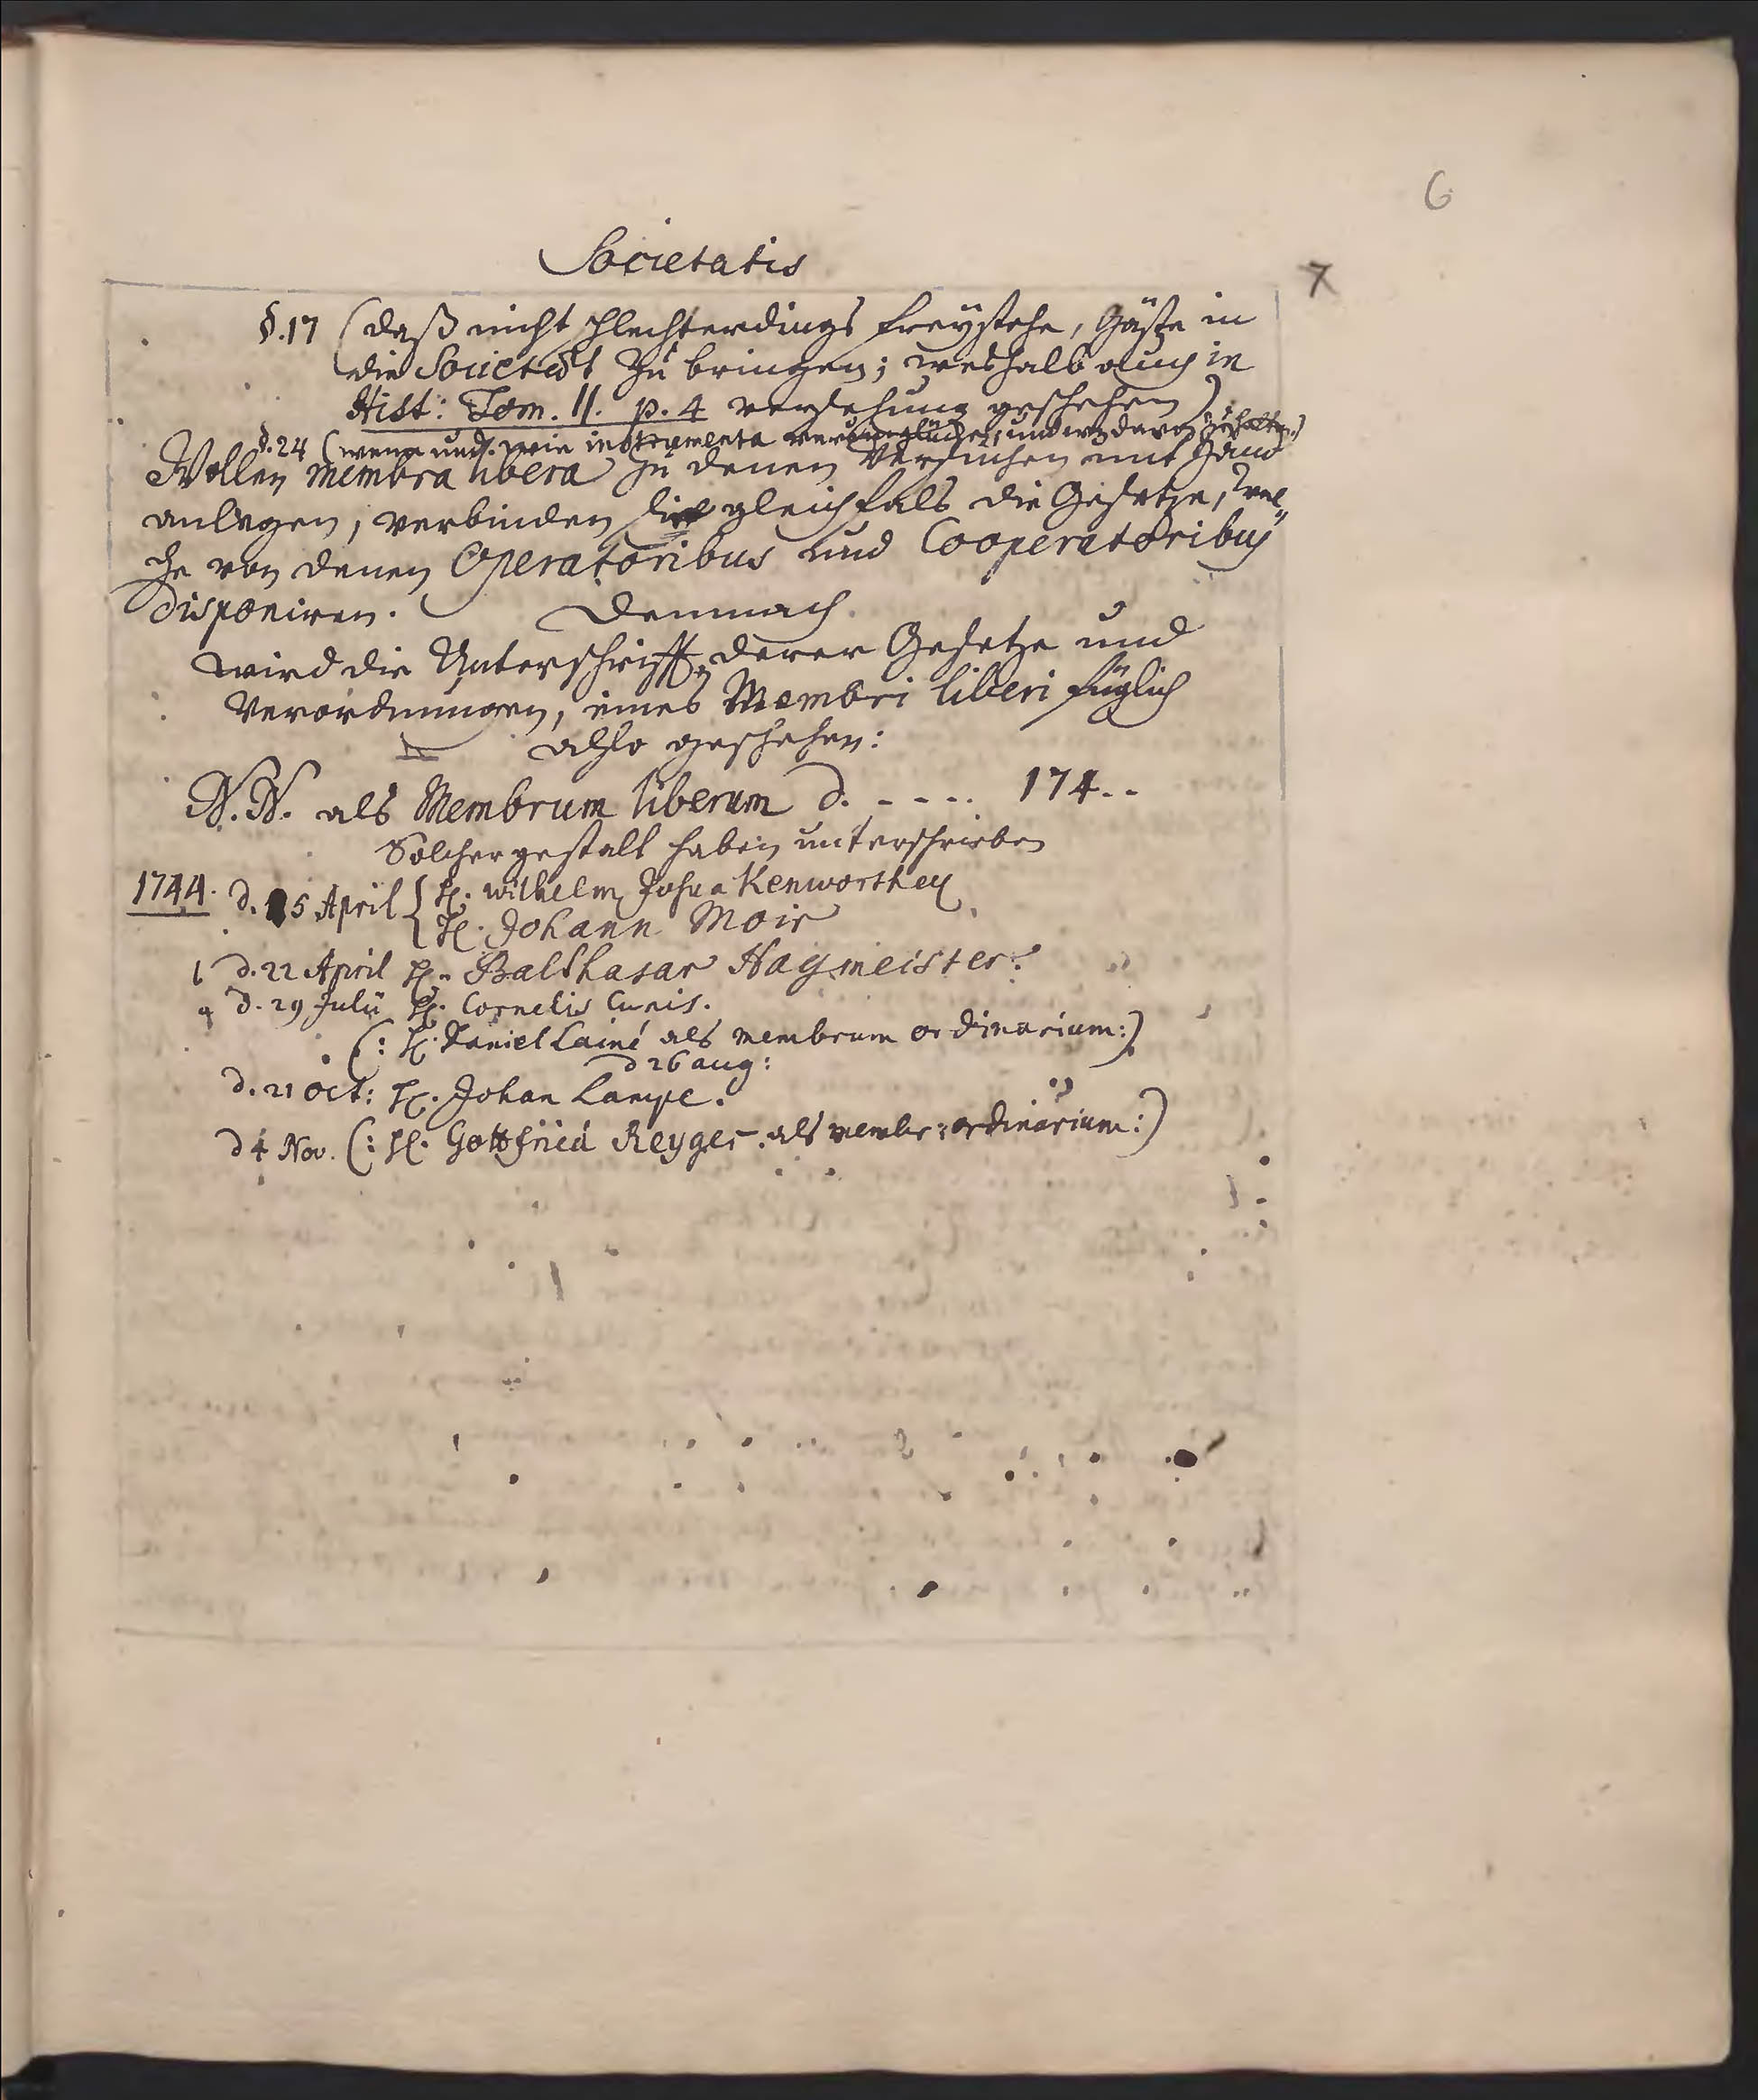 6
Societatis
7
§.17 (daß nicht schlechterdings freystehe, Gäste in
die Societät zu bringen; weshalb auch in
Hist: Tom. II. p. 4 versehung geschehen)
§.24 (wenn und wie instrumenta verunglücken, und wer davor zu haften.)
Wollen membra libera zu denen Versuchen mit Hand
anlegen, verbinden sie gleichfals die Gesetze, wel„
che von denen Operatoribus und Cooperatoribus
disponiren. Demnach
wird die Unterschrifft derer Gesetze und
Verordnungen, eines Membri liberi füglich
also geschehen:
N.N. als Membrum liberum d. . - - .. 174..
Solchergestalt haben unterschrieben
1744. d. 15 April { H. Wilhelm Josua Kenworthey
H. Johann Moir
d. 22 April H. Balthasar Hagmeister.
d. 29 Julii H. Cornelis Cunis.
(: H. Daniel Lainé als membrum ordinarium:)
d 26 aug:
d. 21 Oct: H. Johan Lampe.
d 4 Nov. (: H. Gottfried Reyger. als membr: ordinarium:)